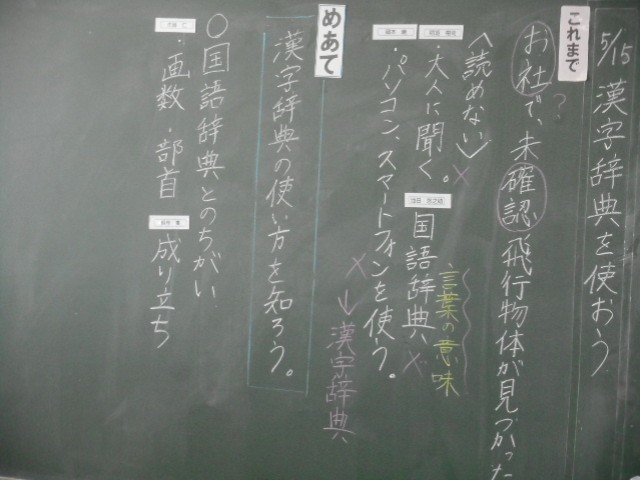 5/15 漢字辞典を使おう
これまで
お社で、未確認飛行物体が見つかった
?
〈読めない〉
・大人に聞く。×
国語辞典×
言葉の意味
・パソコン、スマートフォンを使う。
×→漢字辞典
めあて
漢字辞典の使い方を知ろう。
○国語辞典とのちがい
・画数・部首
成り立ち